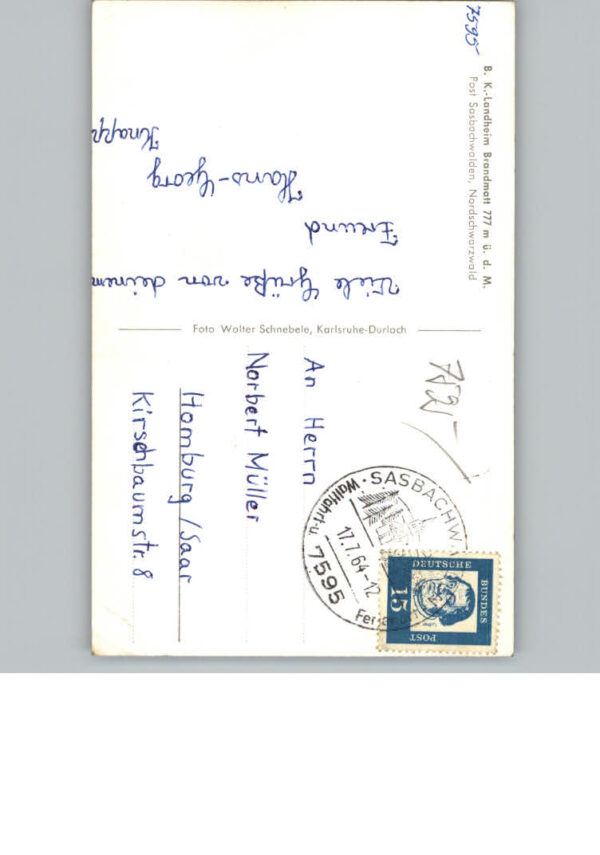 7595
B. K.-Landheim Brandmatt 777 m ü. d. M.
Post Sasbachwalden, Nordschwarzwald
Viele Grüße von deinem
Freund
Hans-Georg
Knapp
Foto Walter Schnebele, Karlsruhe-Durlach
An Herrn
Norbert Müller
Homburg/Saar
Kirschbaumstr. 8
SASBACHW
Wallfahrt- u.
17.7.64-12
7595
DEUTSCHE
BUNDES
POST
15